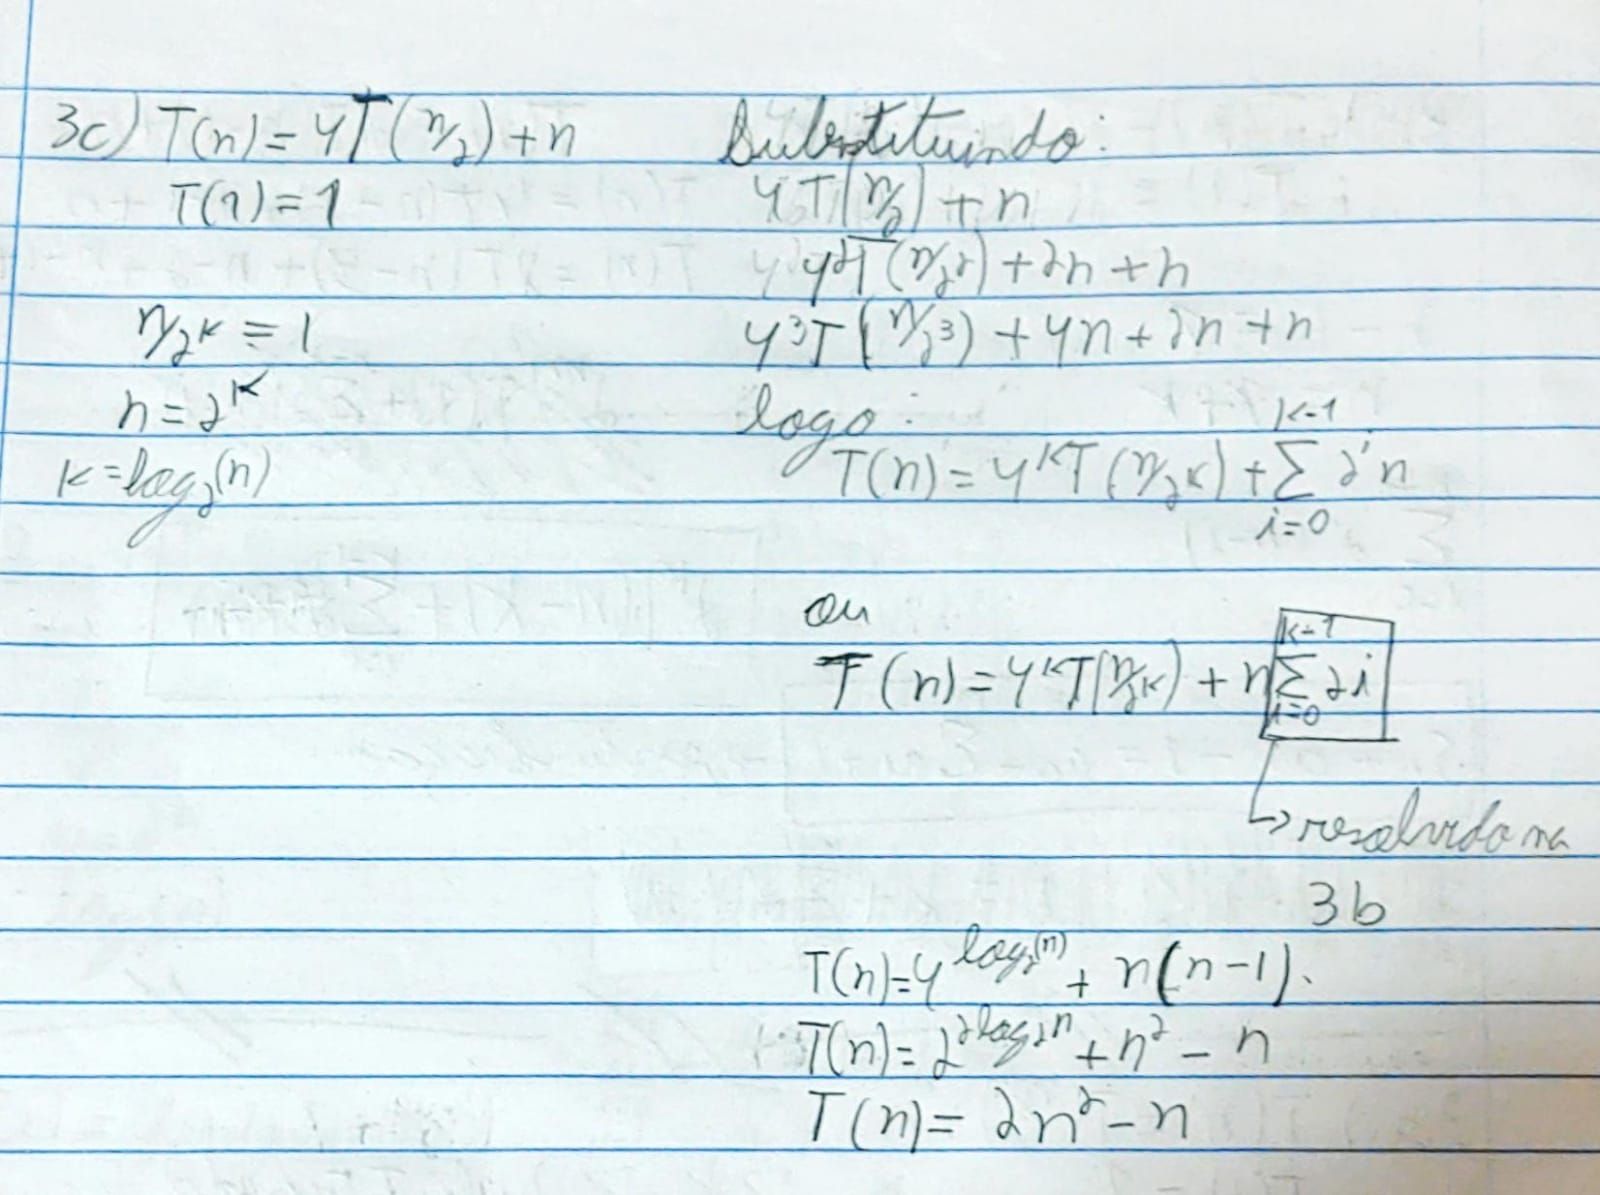 3c) T(n) = 4T(n/2) + n
T(1) = 1
n/2^k = 1
n = 2^k
k = log₂(n)
Substituindo:
4T(n/2) + n
4²T(n/2²) + 2n + n
4³T(n/2³) + 4n + 2n + n
logo:
T(n) = 4^k T(n/2^k) + ∑_{i=0}^{k-1} 2^i n
ou
T(n) = 4^k T(n/2^k) + n ∑_{i=0}^{k-1} 2i
↳ resolvido na
3b
T(n) = 4^{log₂(n)} + n(n-1).
T(n) = 2^{2log₂n} + n² - n
T(n) = 2n² - n